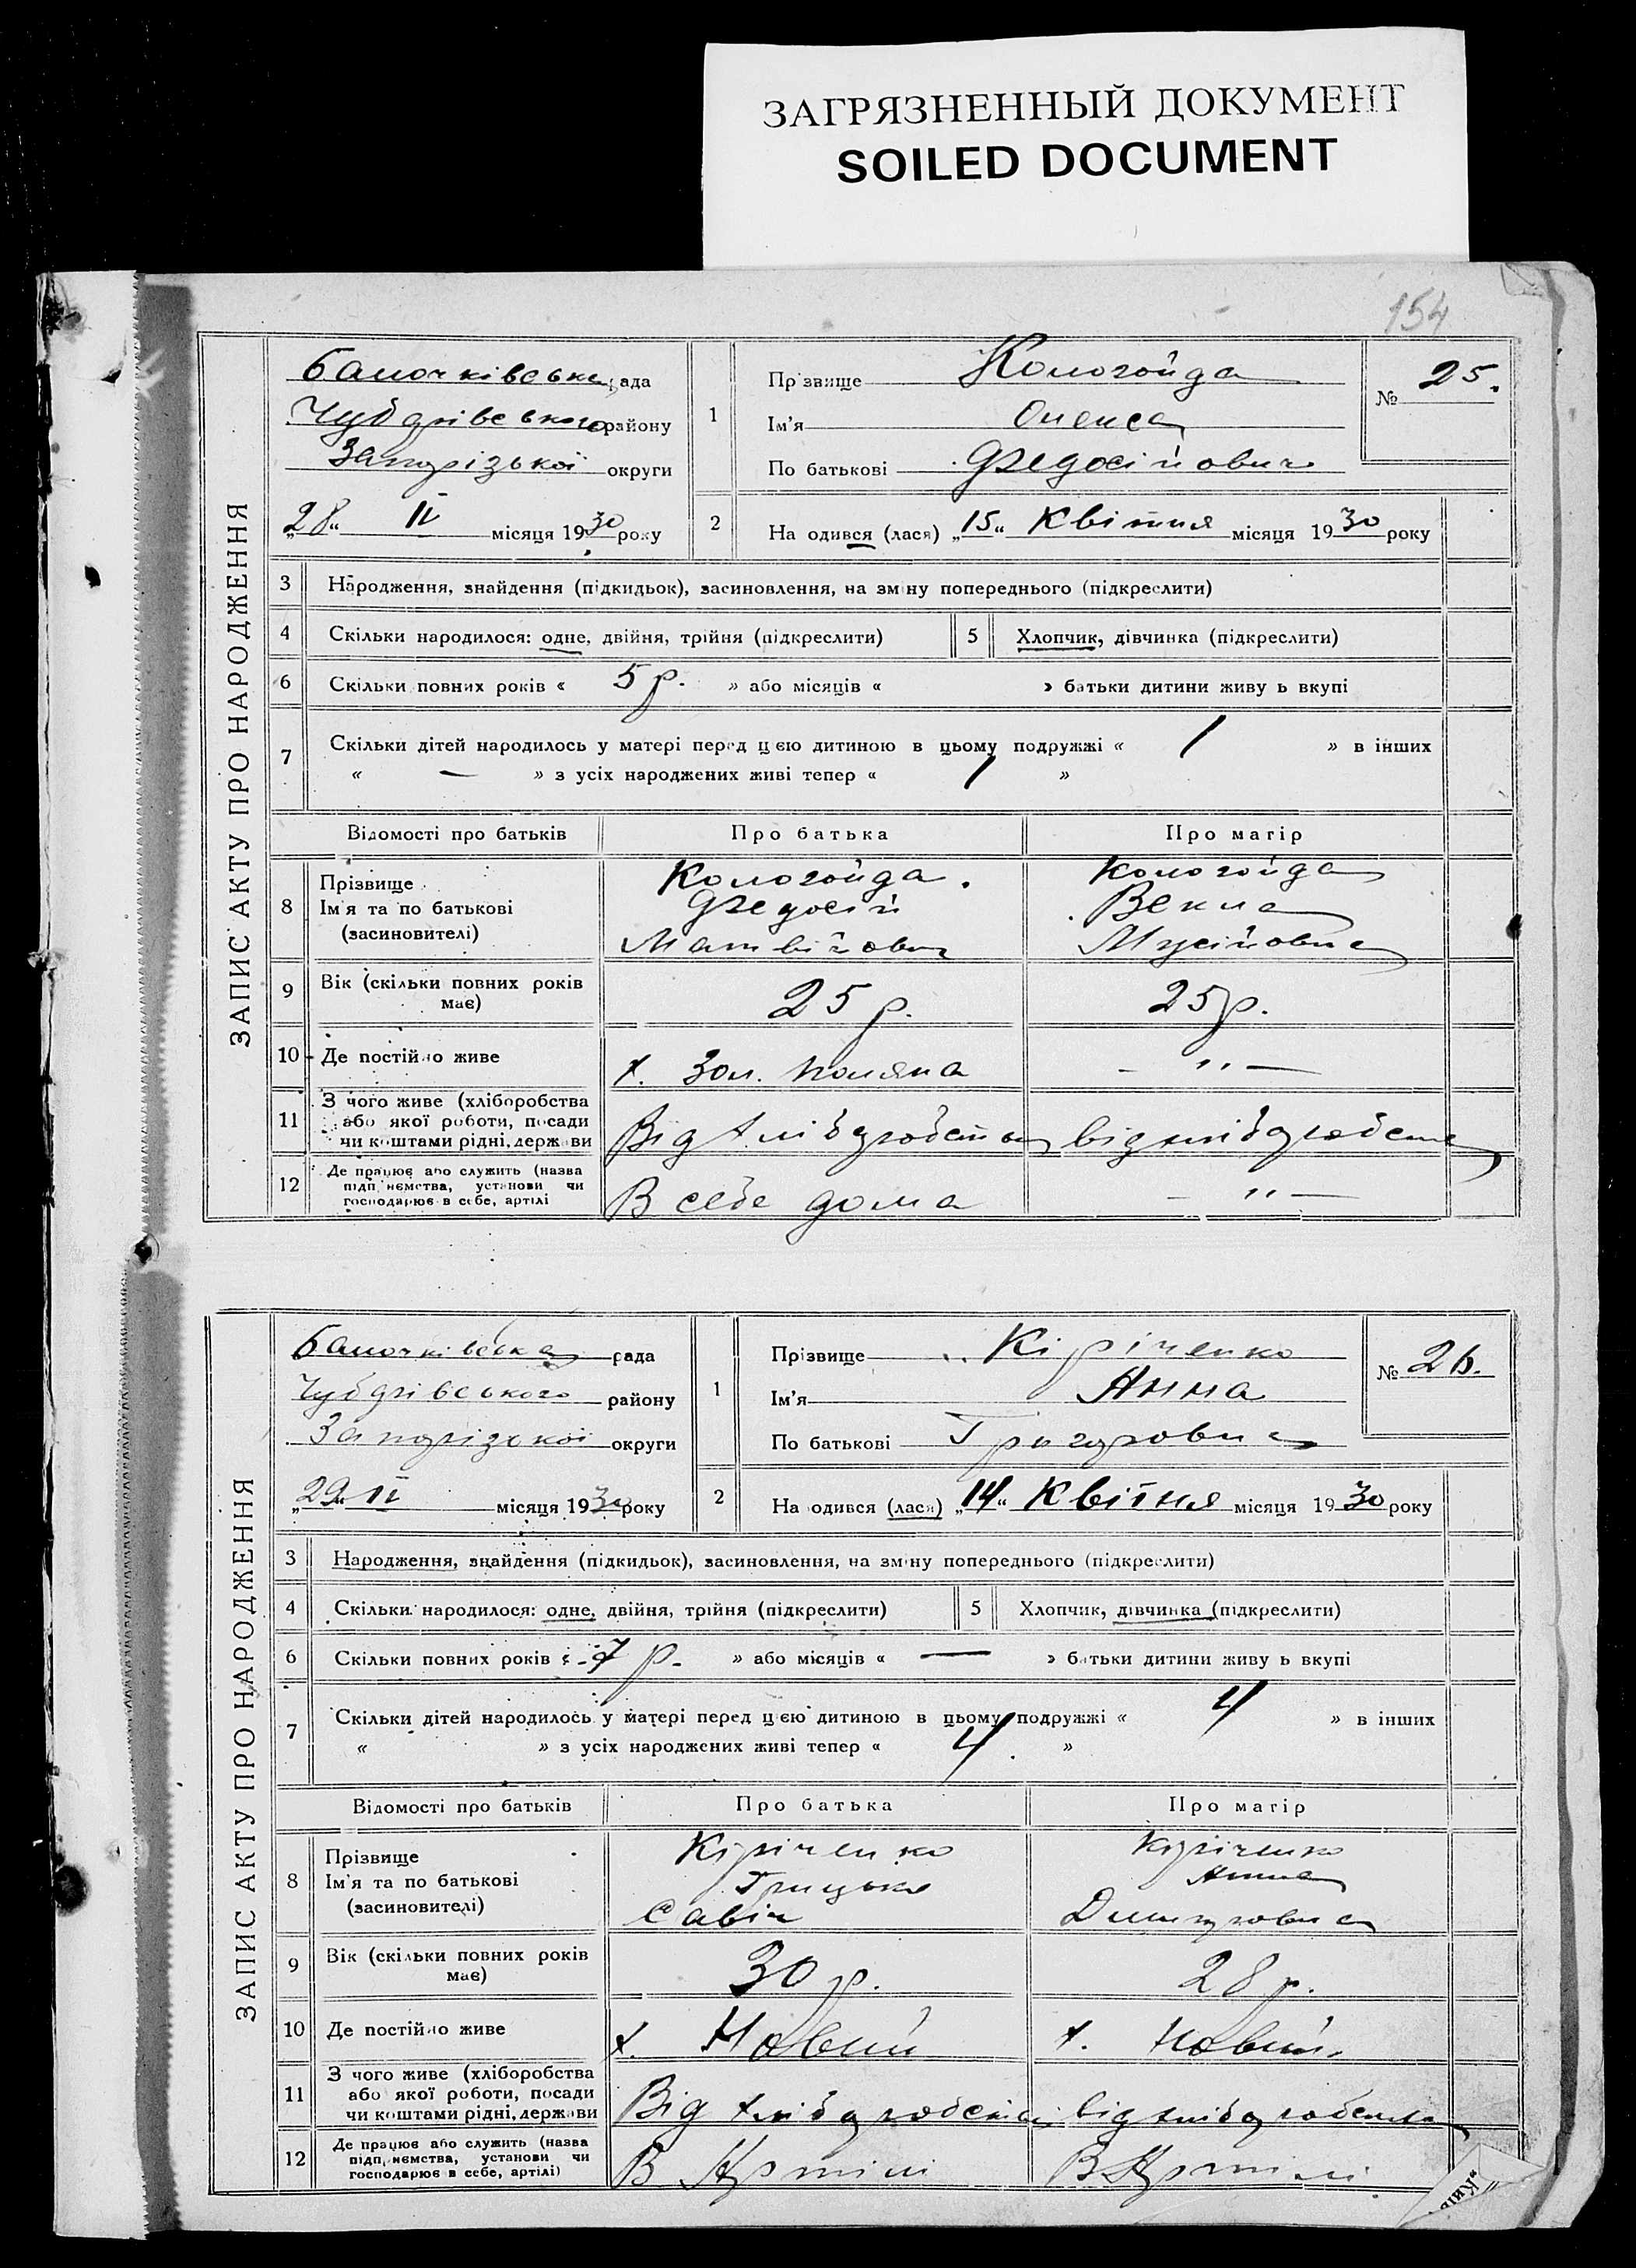 ЗАГРЯЗНЕННЫЙ ДОКУМЕНТ
SOILED DOCUMENT
154
ЗАПИС АКТУ ПРО НАРОДЖЕННЯ
Балочківська рада
Чубарівського району
Запорізької округи
„28“ IV місяця 1930 року
1
Прізвище Кологойда
Ім'я Олекса
По батькові Федосійович
№ 25.
2
Народився (лася) „15“ Квітня місяця 1930 року
3 Народження, знайдення (підкидьок), засиновлення, на зміну попереднього (підкреслити)
4 Скільки народилося: одне, двійня, трійня (підкреслити)
5 Хлопчик, дівчинка (підкреслити)
6 Скільки повних років « 5 р. » або місяців « » батьки дитини живуть вкупі
7 Скільки дітей народилось у матері перед цією дитиною в цьому подружжі « 1 » в інших
« — » з усіх народжених живі тепер « 1 »
Відомості про батьків Про батька Про матір
8 Прізвище Кологойда. Кологойда
Ім'я та по батькові Федосій Векла
(засиновителі) Матвійович Мусіївна
9 Вік (скільки повних років має) 25 р. 25 р.
10 Де постійно живе х. Зол. Поляна – " –
11 З чого живе (хліборобства
або якої роботи, посади
чи коштами рідні, держави Від хліборобства від хліборобства
12 Де працює або служить (назва
підприємства, установи чи
господарює в себе, артілі В себе дома – " –
ЗАПИС АКТУ ПРО НАРОДЖЕННЯ
Балочківська рада
Чубарівського району
Запорізької округи
„29“ IV місяця 1930 року
1
Прізвище Кіріченко
Ім'я Анна
По батькові Григоровна
№ 26.
2
Народився (лася) „14“ Квітня місяця 1930 року
3 Народження, знайдення (підкидьок), засиновлення, на зміну попереднього (підкреслити)
4 Скільки народилося: одне, двійня, трійня (підкреслити)
5 Хлопчик, дівчинка (підкреслити)
6 Скільки повних років « 7 р. » або місяців « — » батьки дитини живуть вкупі
7 Скільки дітей народилось у матері перед цією дитиною в цьому подружжі « 4 » в інших
« » з усіх народжених живі тепер « 4 »
Відомості про батьків Про батька Про матір
8 Прізвище Кіріченко Кіріченко
Ім'я та по батькові Грицько Анна
(засиновителі) Савіч
9 Вік (скільки повних років має) 30 р. 28 р.
10 Де постійно живе х. Новий х. Новий
11 З чого живе (хліборобства
або якої роботи, посади
чи коштами рідні, держави Від хліборобства від хліборобства
12 Де працює або служить (назва
підприємства, установи чи
господарює в себе, артілі) В Артілі В Артілі